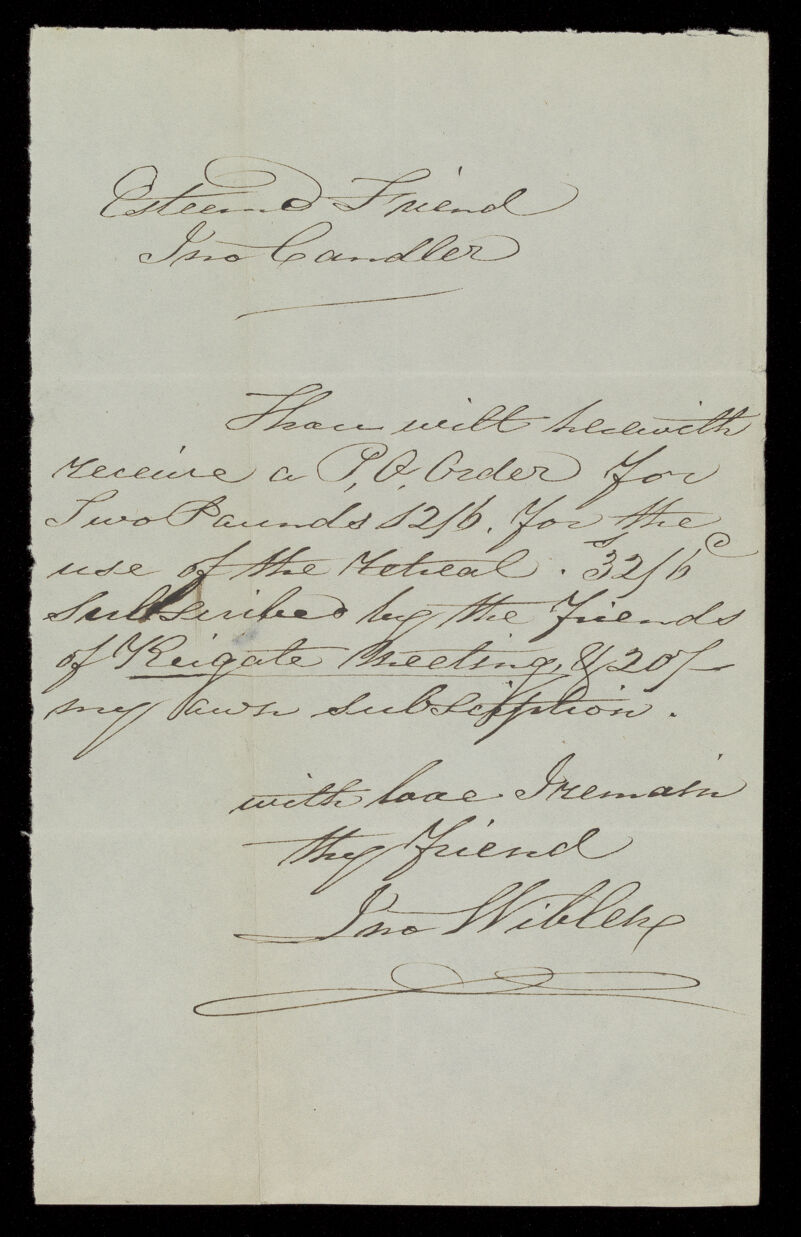 Esteemd Friend
Jno Candler
Thou wilt herewith
receive a P. O. Order for
Two Pounds 12/6. for the
use of the retreat. 32/6
subscribed by the friends
of Reigate Meeting & 20/-
my own subscription.
with love I remain
thy friend
Jno